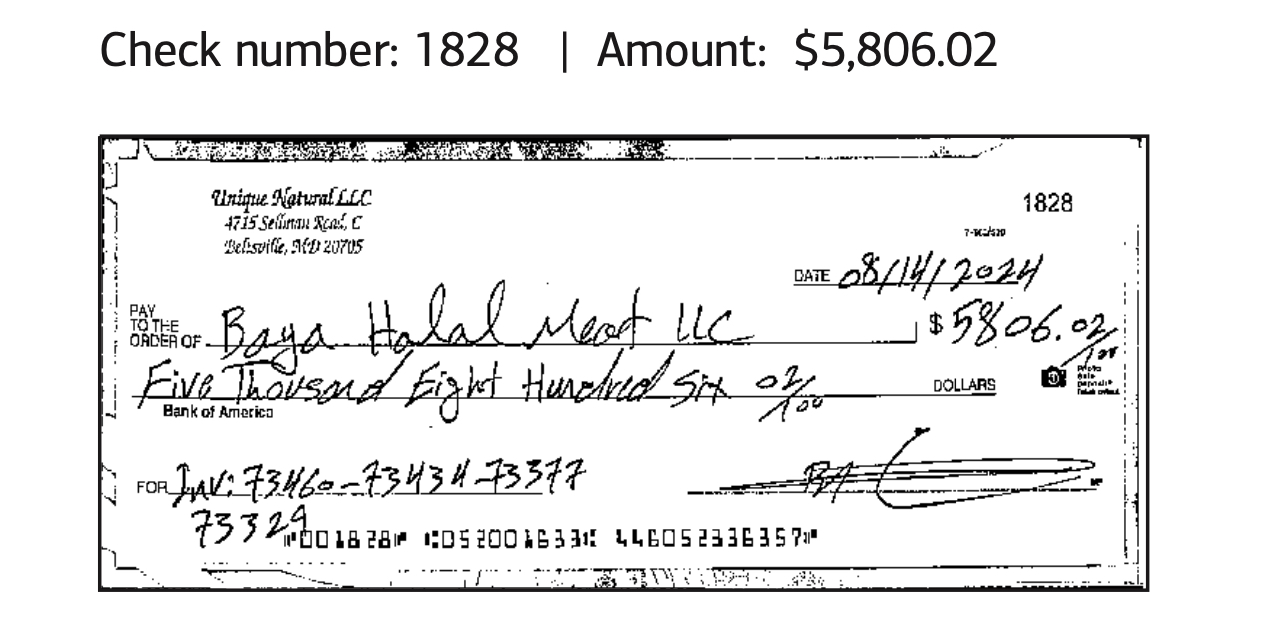 Check number: 1828 | Amount: $5,806.02
Unique Natural LLC
4715 Sellman Road, C
Beltsville, MD 20705
1828
DATE 08/14/2024
PAY
TO THE
ORDER OF Baya Halal Meat LLC $ 5806.02/100
Five Thousand Eight Hundred Six 02/100 DOLLARS
Bank of America
FOR Inv: 73460-73434-73377
73329
⑈001828⑈ ⑆052001633⑆ 446052336357⑈